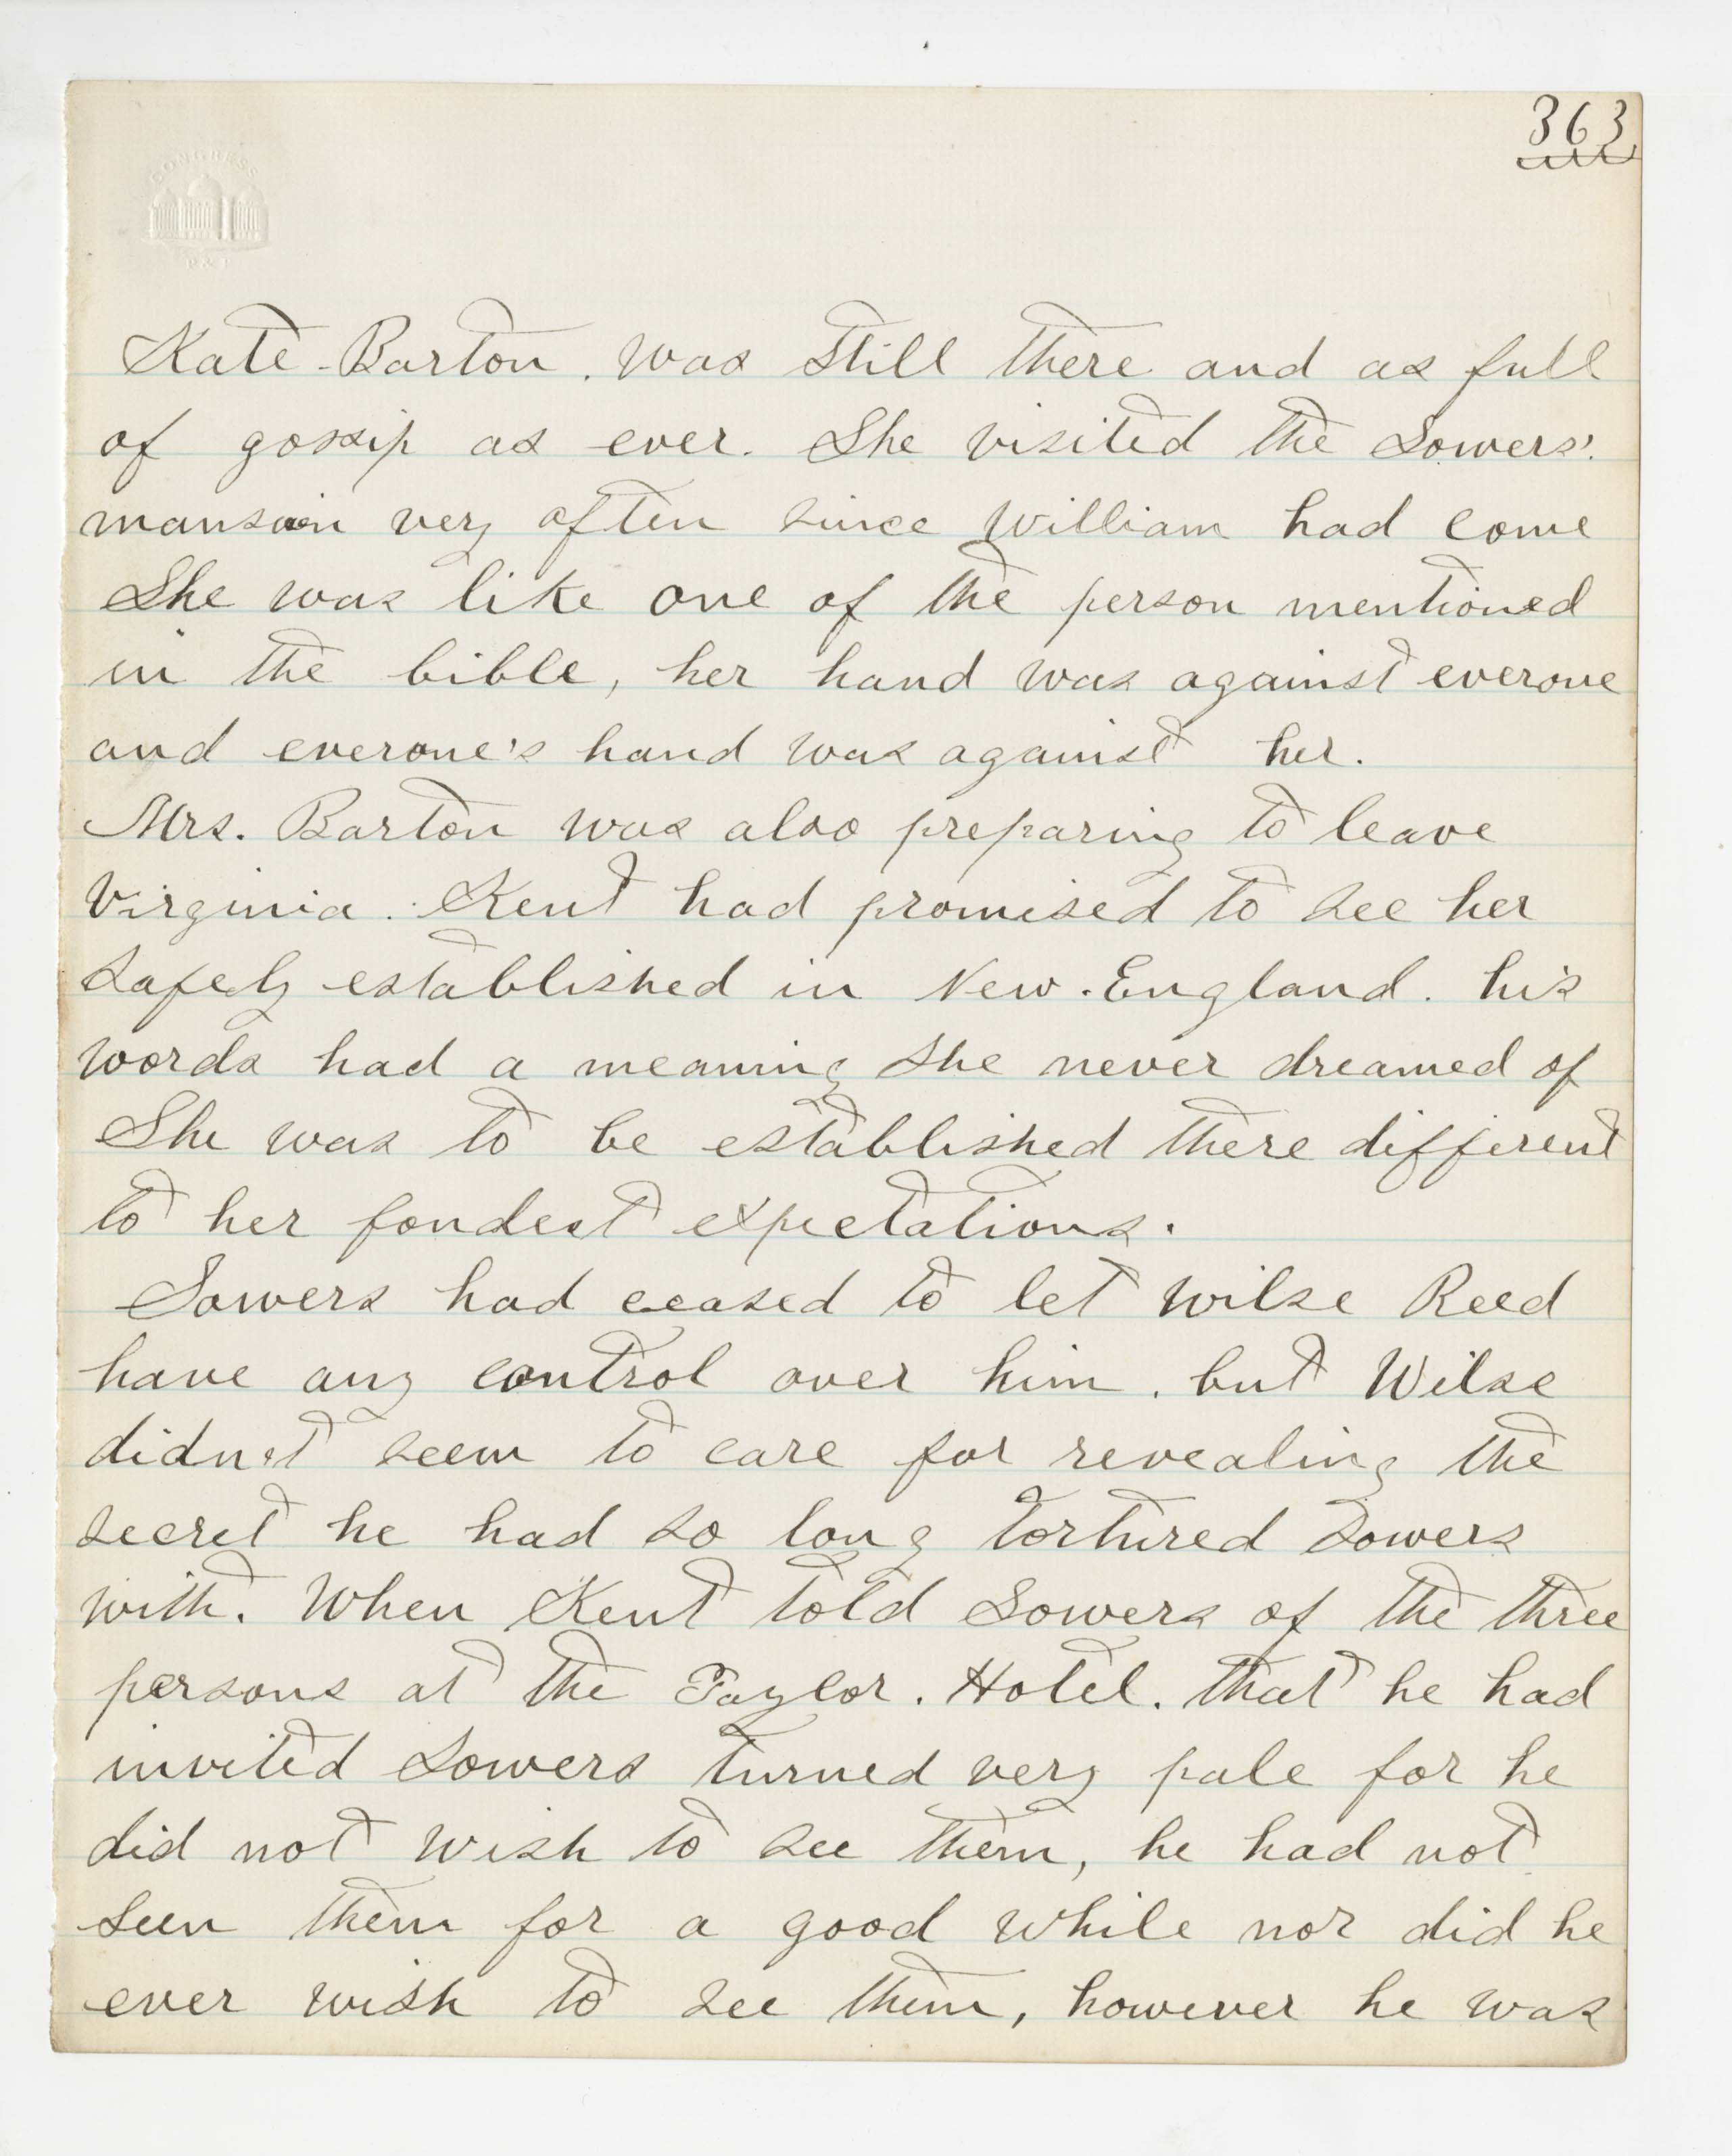 363
CONGRESS
P & P
Kate Barton. was still there and as full
of gossip as ever. She visited the Sowers'.
mansion very often since William had come
She was like one of the person mentioned
in the bible, her hand was against everone
and everone's hand was against her.
Mrs. Barton was also preparing to leave
Virginia. Kent had promised to see her
safely established in New. England. his
words had a meaning she never dreamed of
She was to be established there different
to her fondest expectations.
Sowers had ceased to let Wilse Reed
have any control over him. but Wilse
didn't seem to care for revealing the
secret he had so long tortured Sowers
with. When Kent told Sowers of the three
persons at the Taylor. Hotel. that he had
invited Sowers turned very pale for he
did not wish to see them, he had not
seen them for a good while nor did he
ever wish to see them, however he was